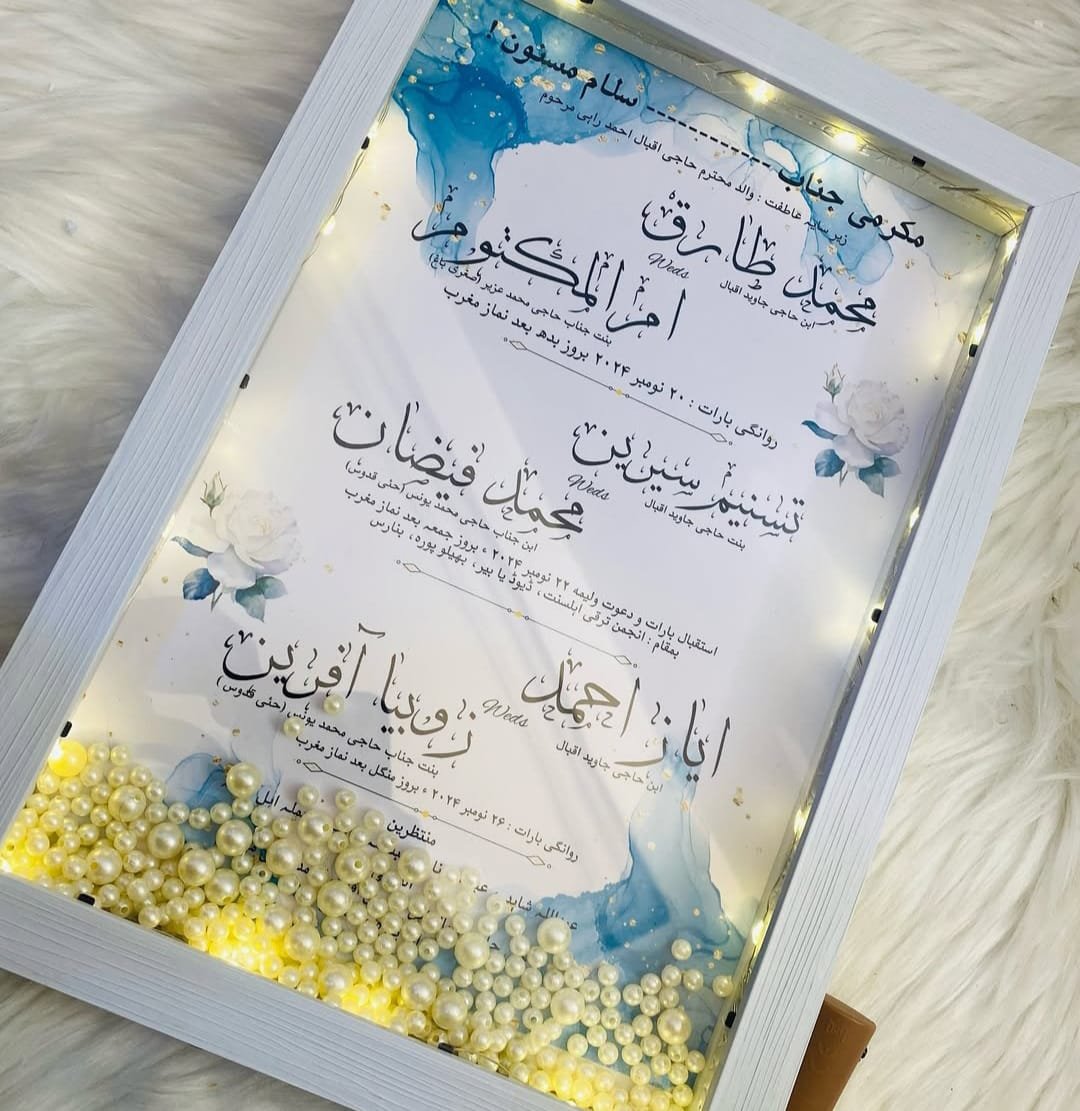 مکرمی جناب ------------ سلام مسنون !
زیر سایہ عاطفت : والد محترم حاجی اقبال احمد راہی مرحوم
محمد طارق
ابن حاجی جاوید اقبال
Weds
ام المکتوم
بنت جناب حاجی محمد عزیر (صغری باغ)
روانگی بارات : ۲۰ نومبر ۲۰۲۴ بروز بدھ بعد نماز مغرب
تسنیم سیرین
بنت حاجی جاوید اقبال
Weds
محمد فیضان
ابن جناب حاجی محمد یونس (حئی قدوس)
استقبال بارات و دعوت ولیمہ ۲۲ نومبر ۲۰۲۴ ء بروز جمعہ بعد نماز مغرب
بمقام : انجمن ترقی اہلسنت، ڈیوڈیا بیر، بھیلو پورہ، بنارس
ایاز احمد
ابن حاجی جاوید اقبال
Weds
زوبیا آفرین
بنت جناب حاجی محمد یونس (حئی قدوس)
روانگی بارات : ۲۶ نومبر ۲۰۲۴ ء بروز منگل بعد نماز مغرب
منتظرین
جملہ اہل
عبداللہ شاہد